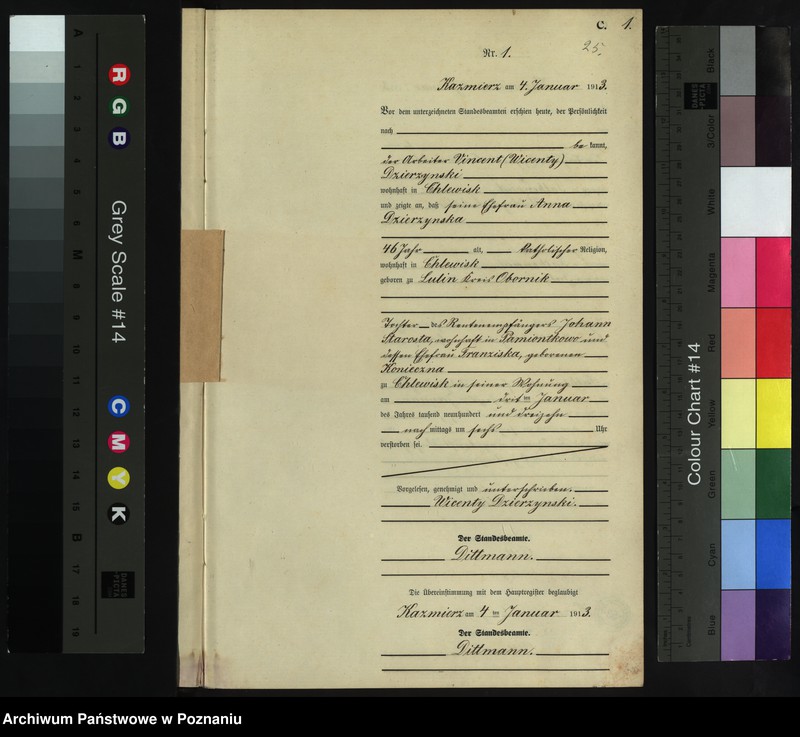 C. 1.
25.
Nr. 1.
Kazmierz am 4. Januar 1913.
Vor dem unterzeichneten Standesbeamten erschien heute, der Persönlichkeit
nach
be kannt,
der Arbeiter Vincent (Wicenty)
Dzierzynski
wohnhaft in Chlewisk
und zeigte an, daß seine Ehefrau Anna
Dzierzynska
46 Jahr alt, katholischer Religion,
wohnhaft in Chlewisk
geboren zu Lulin Kreis Obornik
Tochter des Rentenempfängers Johann
Starosta, wohnhaft in Pamiontkowo und
dessen Ehefrau Franziska, geborenen
Konieczna
zu Chlewisk in seiner Wohnung
am drit ten Januar
des Jahres tausend neunhundert und dreizehn
nach mittags um sechs Uhr
verstorben sei.
Vorgelesen, genehmigt und unterschrieben.
Wicenty Dzierzynski.
Der Standesbeamte.
Dittmann.
Die Übereinstimmung mit dem Hauptregister beglaubigt
Kazmierz am 4 ten Januar 1913.
Der Standesbeamte.
Dittmann.
R
G
B
Grey Scale #14
C
M
Y
K
A
M
B
DANES PICTA
Colour Chart #14
Black
3/Color
White
Magenta
Red
Yellow
Green
Cyan
Blue
Centimetres
Archiwum Państwowe w Poznaniu